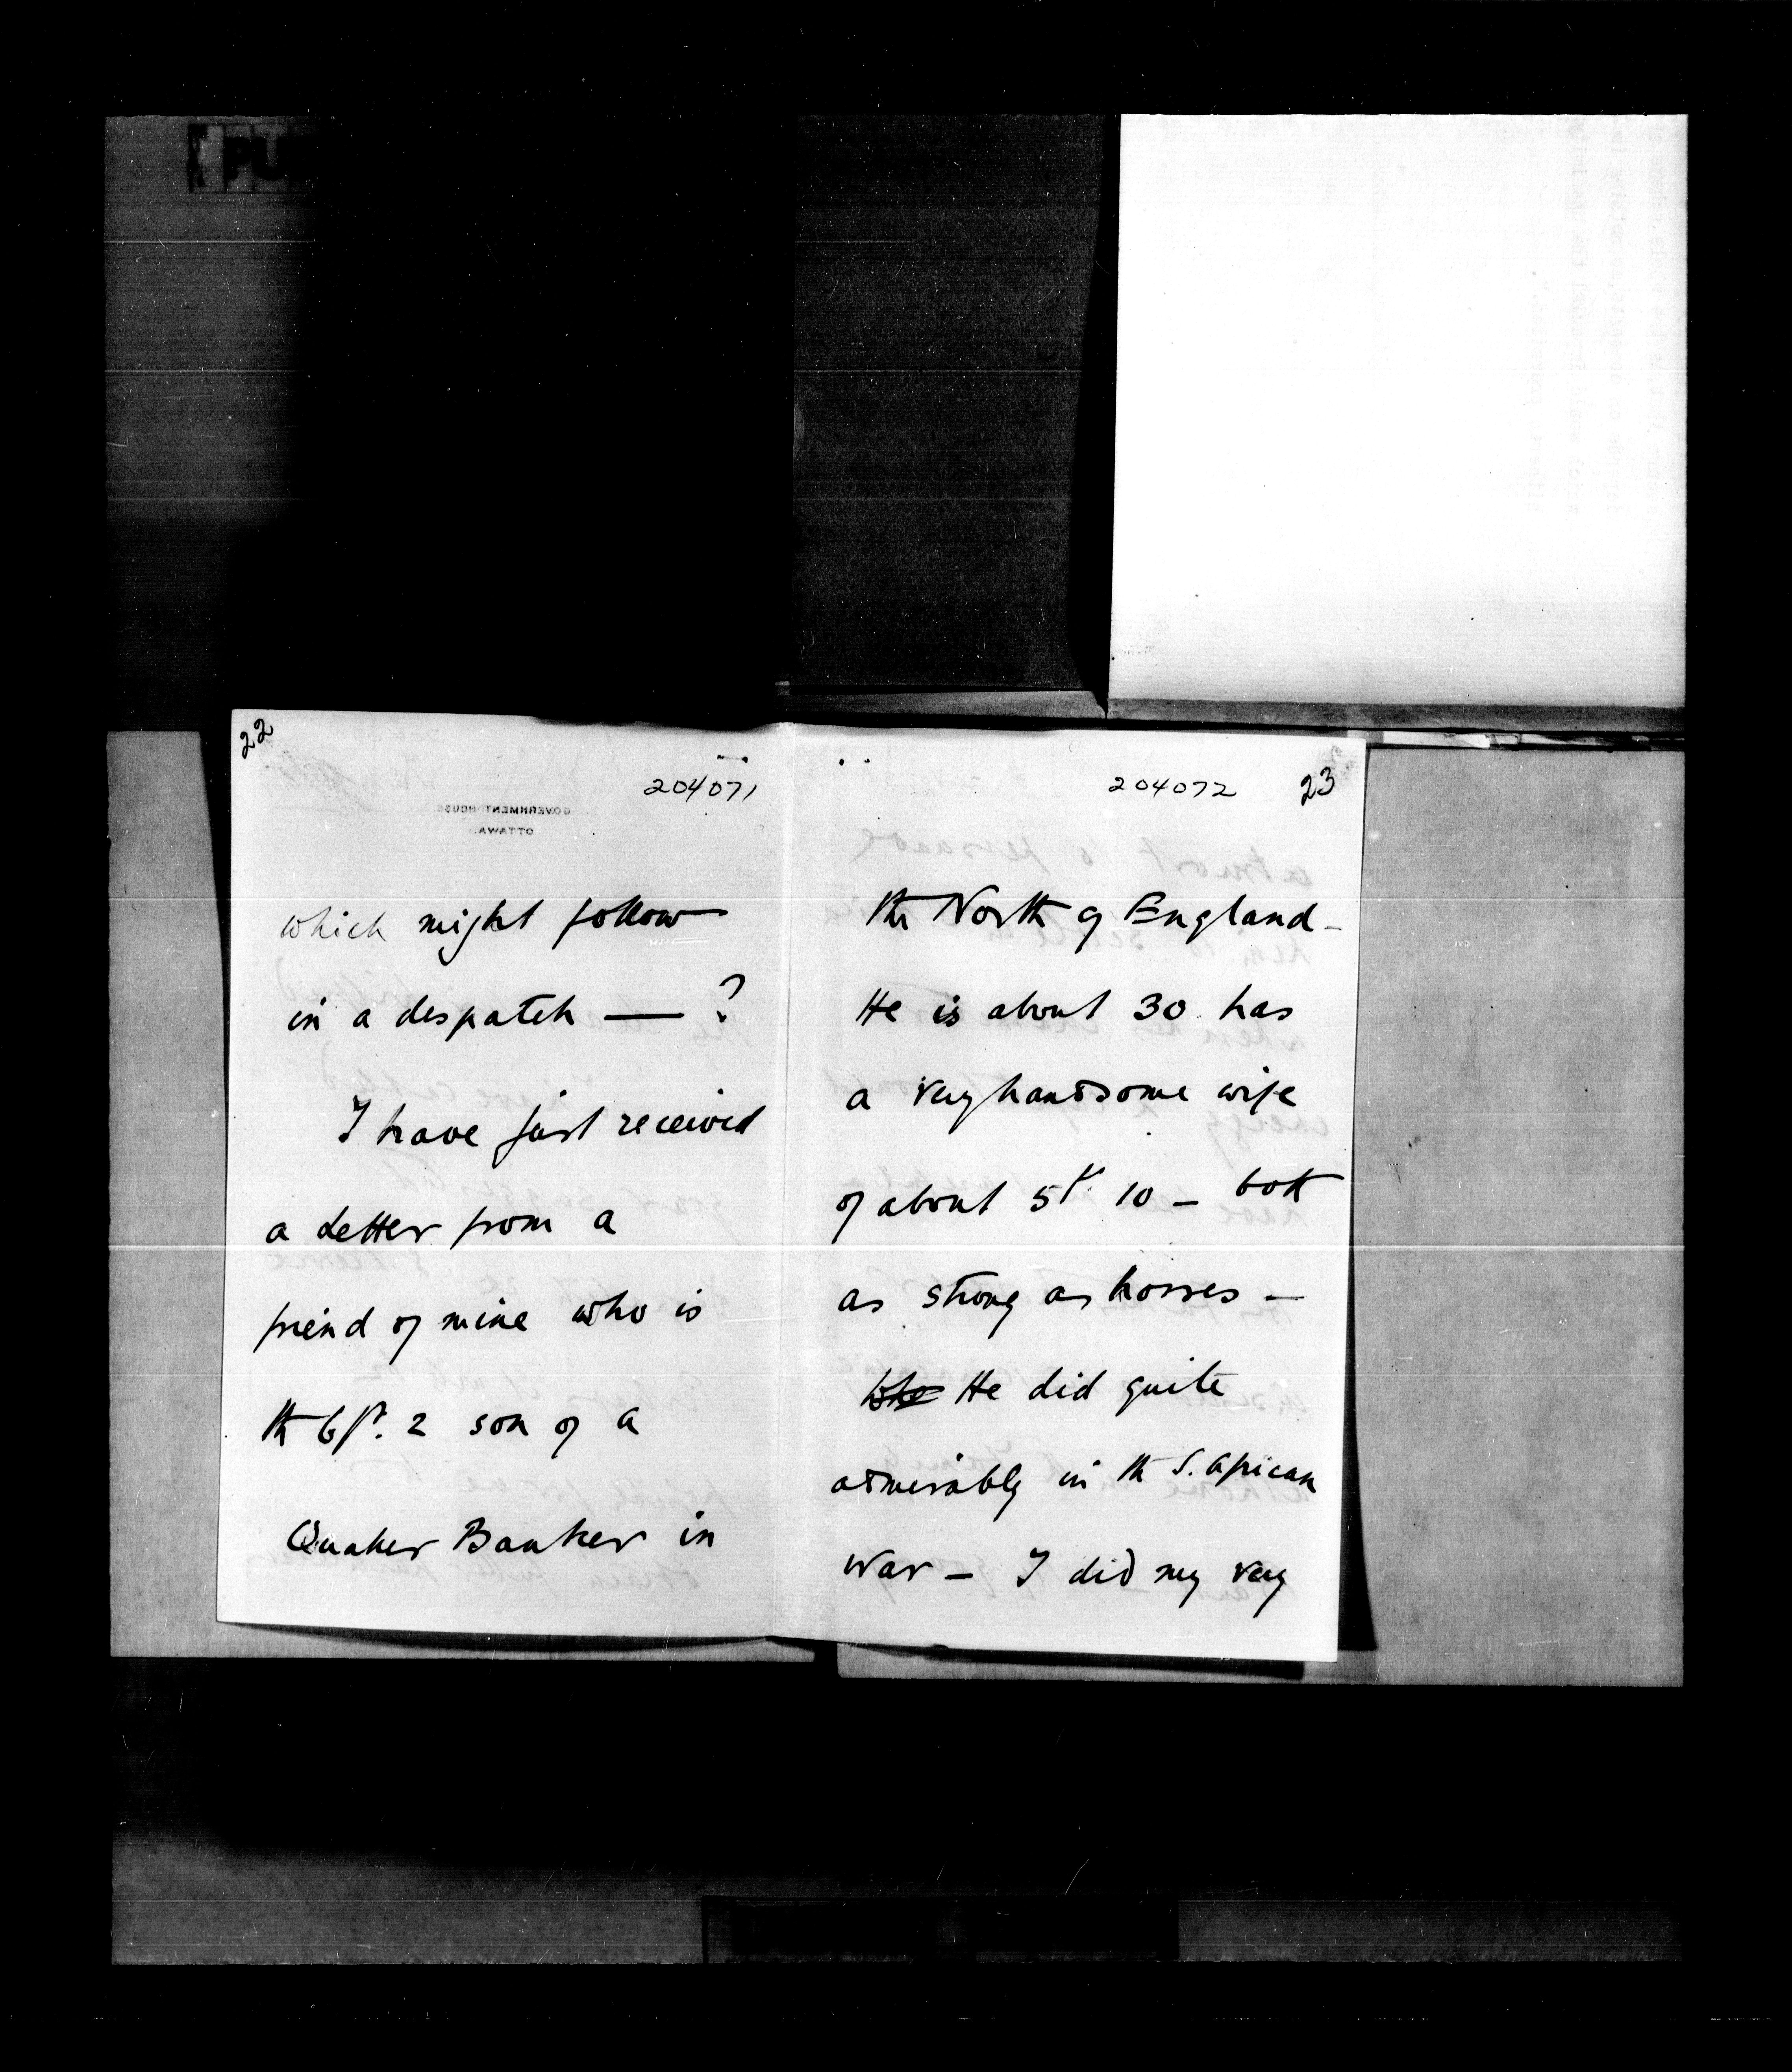 22
204071
GOVERNMENT HOUSE
OTTAWA.
which might follow
in a despatch — ?
I have just received
a letter from a
friend of mine who is
the 6 ft. 2 son of a
Quaker Banker in
204072 23
the North of England -
He is about 30 has
a very handsome wife
of about 5 ft. 10 - both
as strong as horses -
who He did quite
admirably in the S. African
War - I did my very